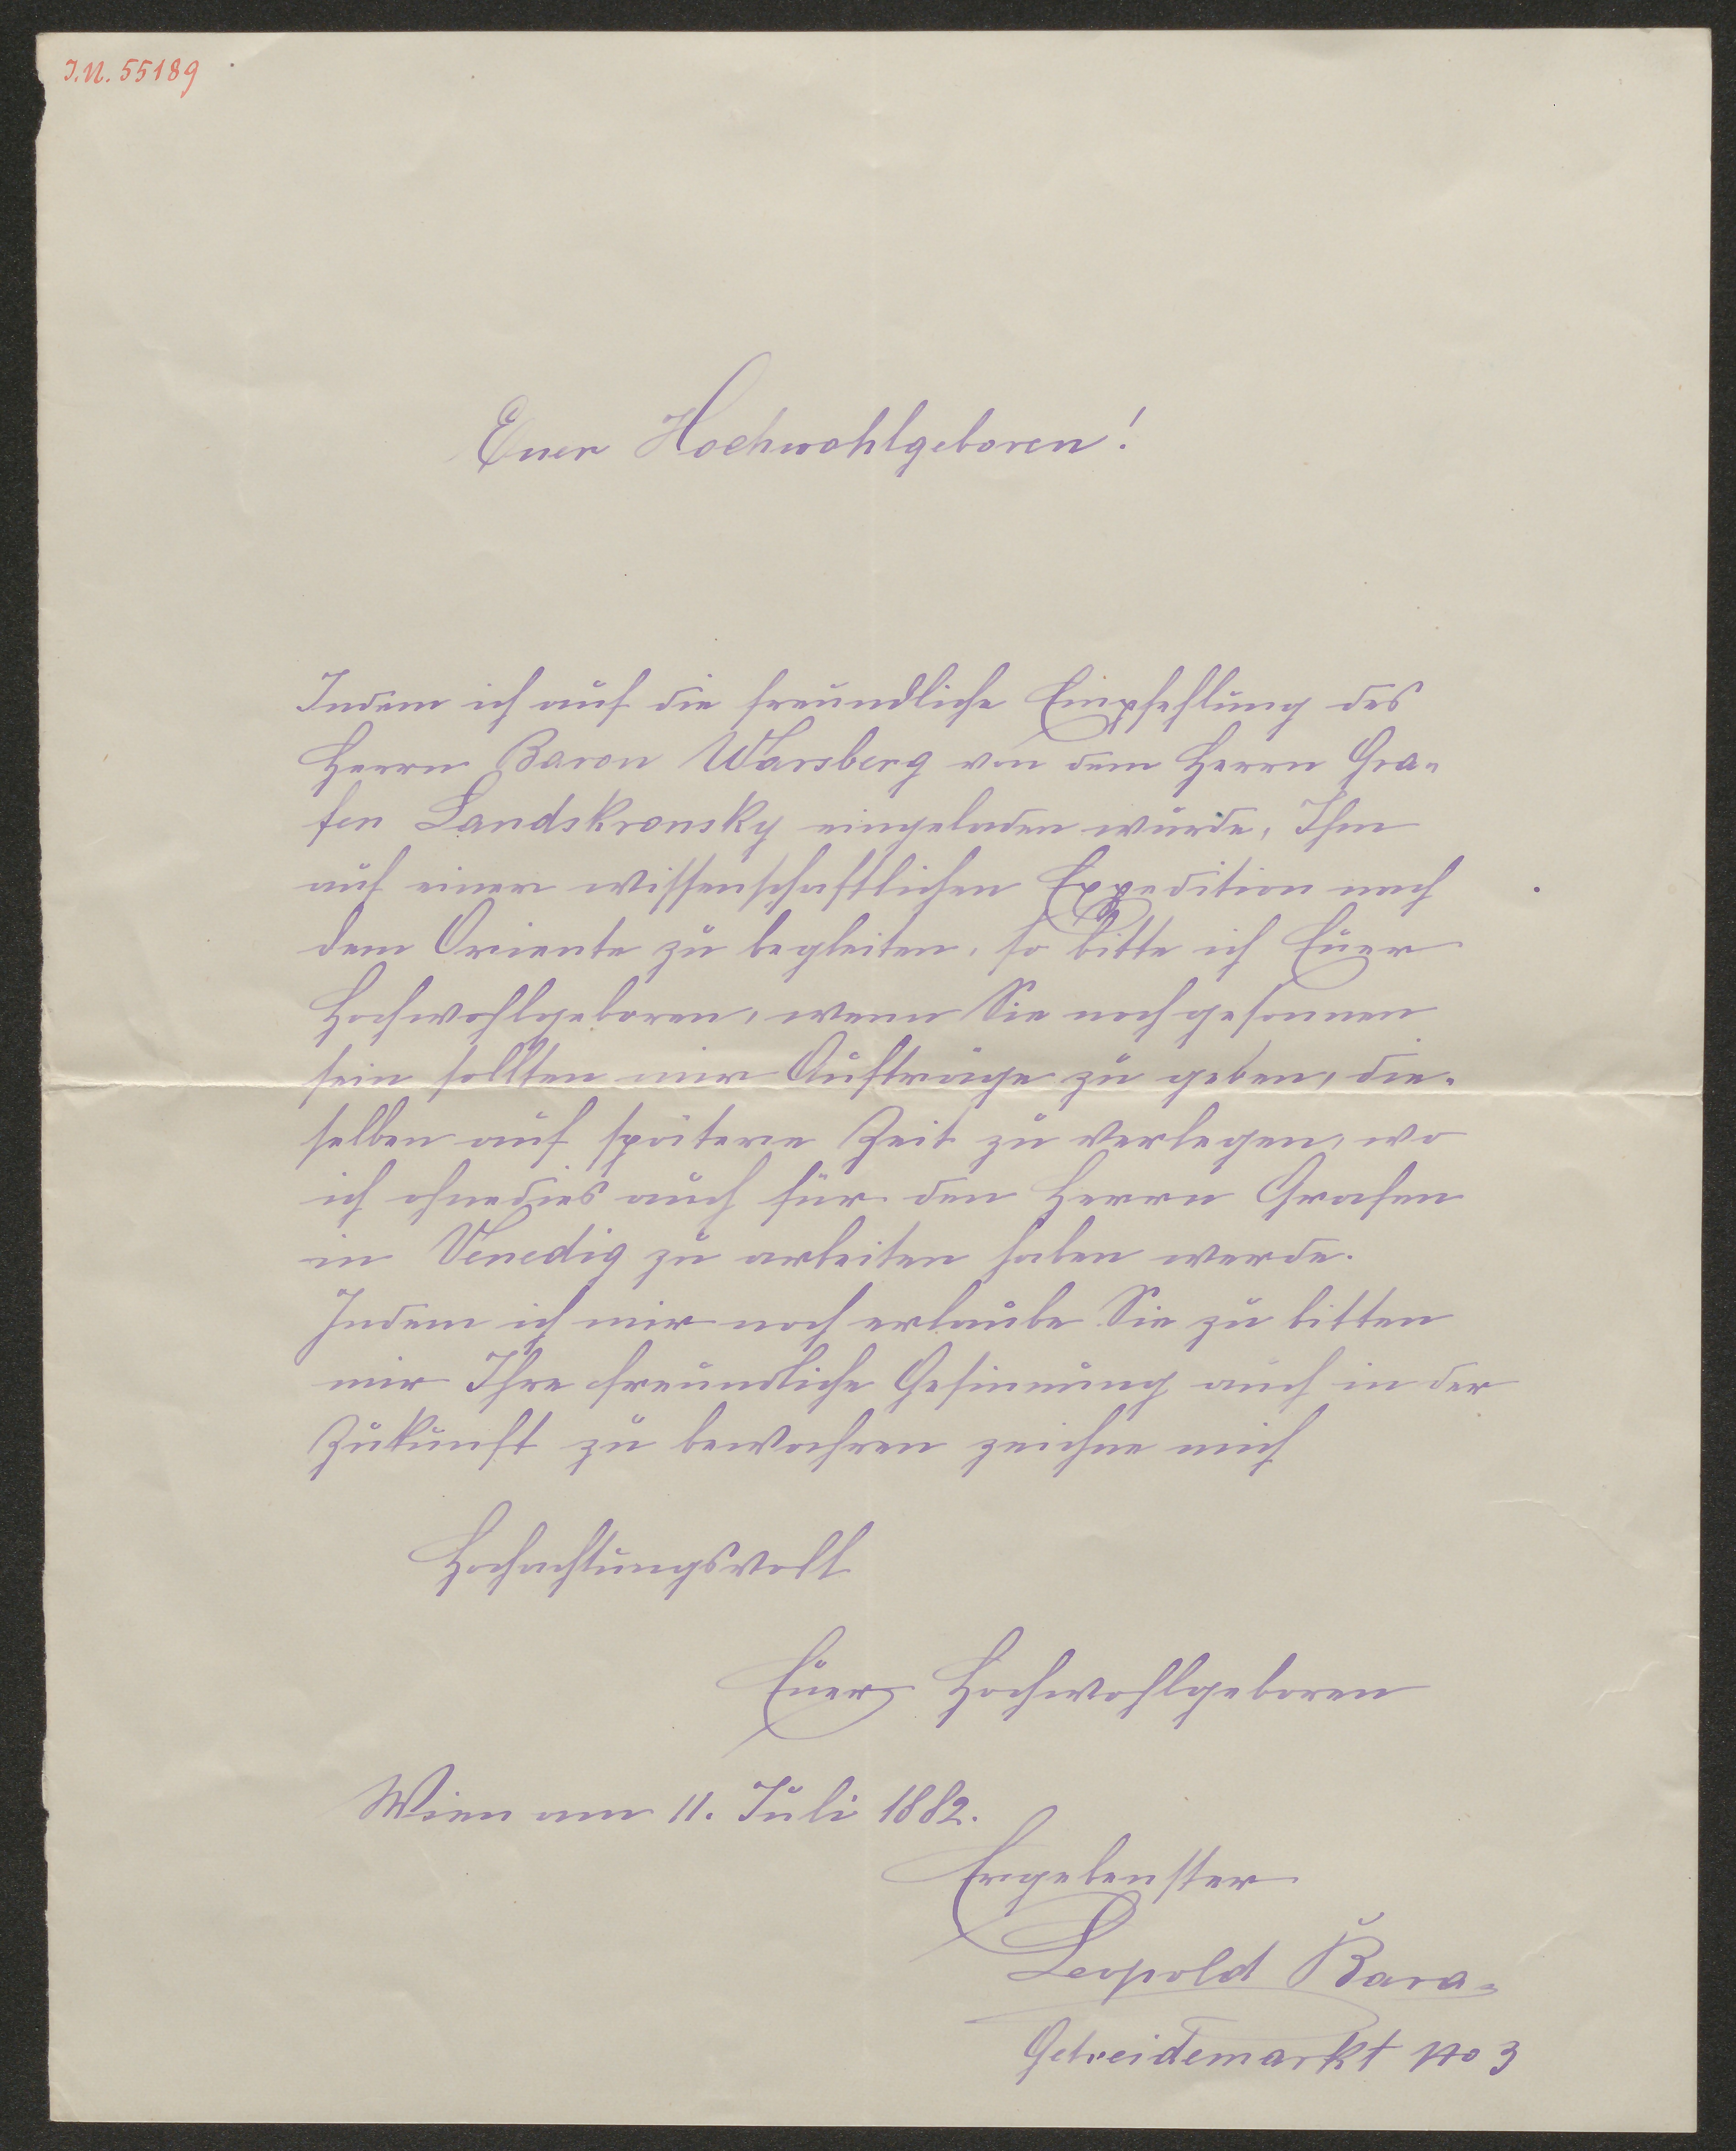 I.N. 55189
Euer Hochwohlgeboren!
Indem ich auf die freundliche Empfehlung des
Herrn Baron Warsberg von dem Herrn Gra-
fen Landskronsky eingeladen wurde, Ihm
auf einer wissenschaftlichen Expedition nach
dem Oriente zu begleiten, so bitte ich Euer
Hochwohlgeboren, wenn Sie noch gesonnen
sein sollten mir Aufträge zu geben, die-
selben auf spätere Zeit zu verlegen, wo
ich ohnedies auch für den Herrn Grafen
in Venedig zu arbeiten haben werde.
Indem ich mir noch erlaube Sie zu bitten
mir Ihre freundliche Gesinnung auch in der
Zukunft zu bewahren zeichne mich
Hochachtungsvoll
Euer Hochwohlgeboren
Wien am 11. Juli 1882.
Ergebenster
Leopold Bara
Getreidemarkt No 3